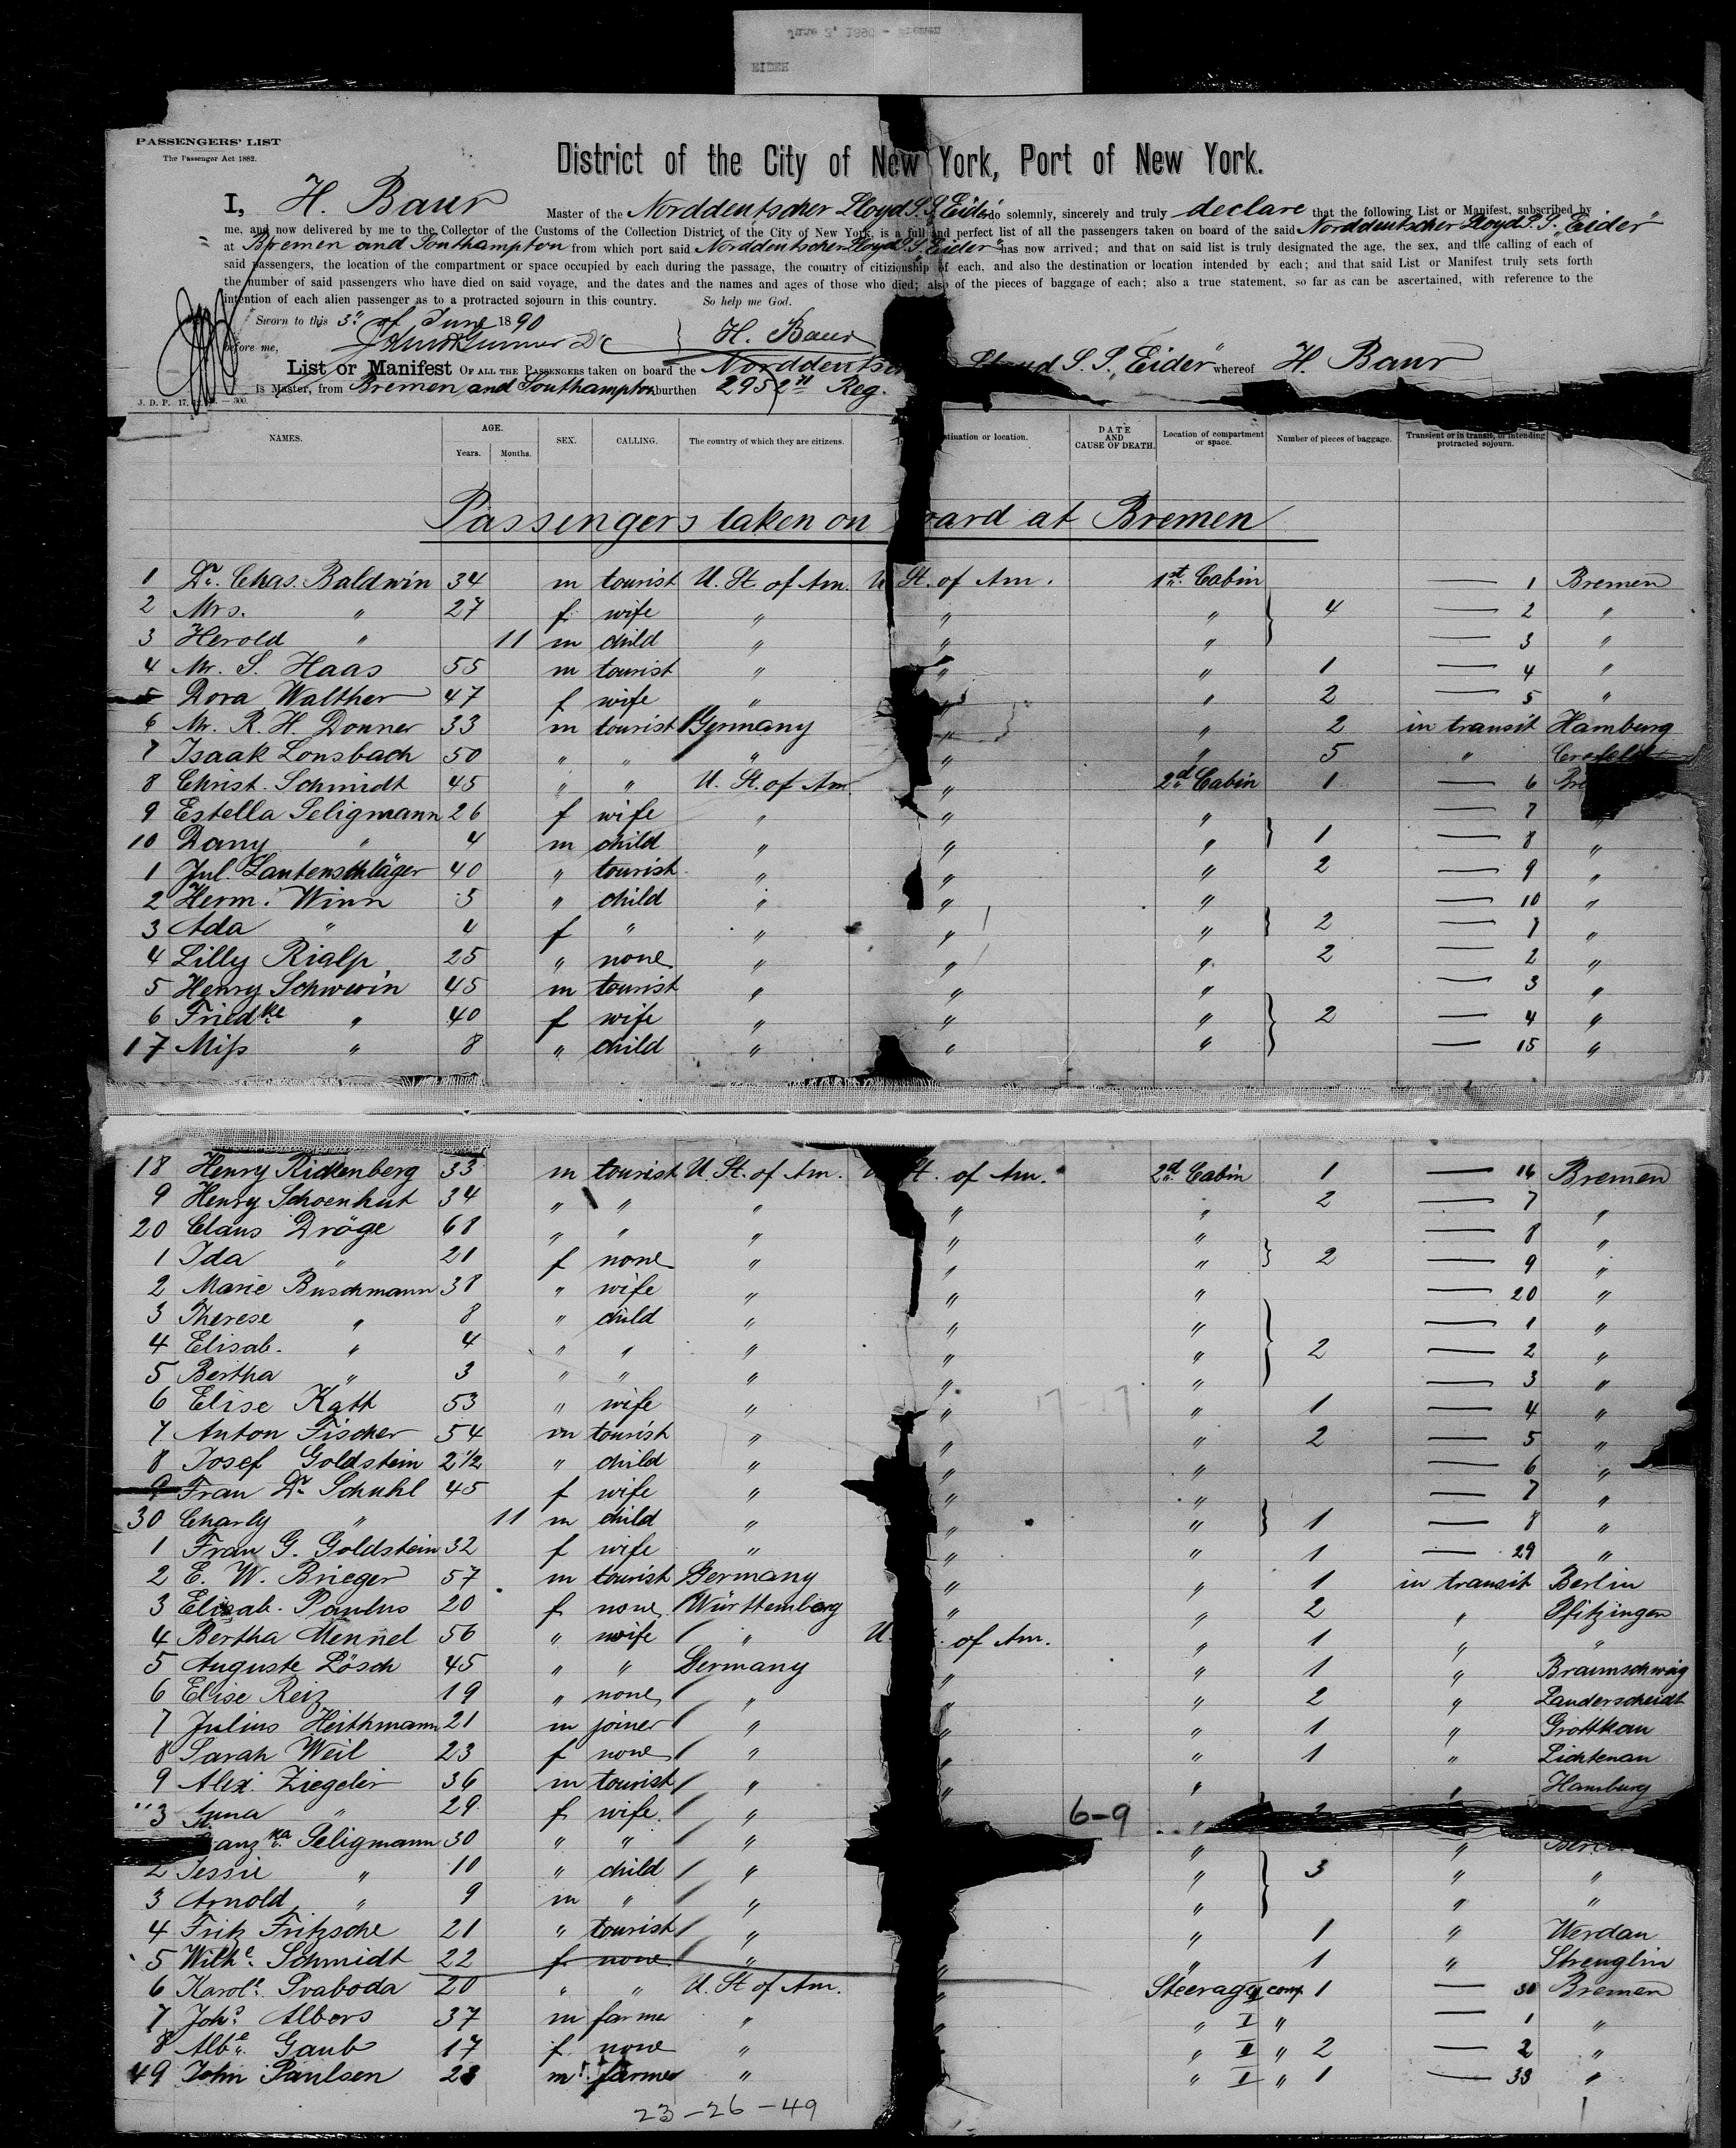 June 3, 1890 - Bremen
EIDER
PASSENGERS' LIST
The Passenger Act 1882.
District of the City of New York, Port of New York.
I, H. Baur Master of the Norddeutscher Lloyd S. S. "Eider" do solemnly, sincerely and truly declare that the following List or Manifest, subscribed by
me, and now delivered by me to the Collector of the Customs of the Collection District of the City of New York, is a full and perfect list of all the passengers taken on board of the said Norddeutscher Lloyd S. S. "Eider"
at Bremen and Southampton from which port said Norddeutscher Lloyd S. S. "Eider" has now arrived; and that on said list is truly designated the age, the sex, and the calling of each of
said passengers, the location of the compartment or space occupied by each during the passage, the country of citizenship of each, and also the destination or location intended by each; and that said List or Manifest truly sets forth
the number of said passengers who have died on said voyage, and the dates and the names and ages of those who died; also of the pieces of baggage of each; also a true statement, so far as can be ascertained, with reference to the
intention of each alien passenger as to a protracted sojourn in this country. So help me God.
Sworn to this 3" of June 1890
before me, } H. Baur
List or Manifest OF ALL THE PASSENGERS taken on board the Norddeutsc Lloyd S. S. "Eider" whereof H. Baur
is Master, from Bremen and Southampton burthen 2952 Reg.
J. D. P. 17.
NAMES. AGE. Years. Months. SEX. CALLING. The country of which they are citizens. stination or location. DATE AND CAUSE OF DEATH. Location of compartment or space. Number of pieces of baggage. Transient or in transit, or intending protracted sojourn.
Passengers taken on oard at Bremen
1 Dr. Chas. Baldwin 34 m tourist U. St. of Am. U St. of Am. 1st Cabin — 1 Bremen
2 Mrs. " 27 f wife " " " 4 — 2 "
3 Herold " 11 m child " " " — 3 "
4 Mr. S. Haas 55 m tourist " " " 1 — 4 "
5 Dora Walther 47 f wife " " " 2 — 5 "
6 Mr. R. H. Donner 33 m tourist Germany " " 2 in transit Hamburg
7 Isaak Lonsbach 50 " " " " " 5 " Crefeld
8 Christ. Schmidt 45 " " U. St. of Am. " 2d Cabin 1 — 6 Bre
9 Estella Seligmann 26 f wife " " " — 7 "
10 Dany " 4 m child " " " 1 — 8 "
1 Jul. Lautenschläger 40 " tourist " " " 2 — 9 "
2 Herm. Winn 5 " child " " " — 10 "
3 Ada " 4 f " " " " 2 — 1 "
4 Lilly Rialp 25 " none " " " 2 — 2 "
5 Henry Schwerin 45 m tourist " " " — 3 "
6 Friedke " 40 f wife " " " 2 — 4 "
17 Miss " 8 " child " " " — 15 "
18 Henry Rickenberg 33 m tourist U. St. of Am. U St. of Am. 2d Cabin 1 — 16 Bremen
9 Henry Schoenhut 34 " " " " " 2 — 7 "
20 Claus Dröge 68 " " " " " — 8 "
1 Ida " 21 f none " " " 2 — 9 "
2 Marie Buschmann 38 " wife " " " — 20 "
3 Therese " 8 " child " " " — 1 "
4 Elisab. " 4 " " " " " 2 — 2 "
5 Bertha " 3 " " " " " — 3 "
6 Elise Katt 53 " wife " " " 1 — 4 "
7 Anton Fischer 54 m tourist " " " 2 — 5 "
8 Josef Goldstein 2 1/2 " child " " " — 6 "
9 Frau Dr. Schuhl 45 f wife " " " — 7 "
30 Charly " 11 m child " " " 1 — 8 "
1 Frau G. Goldstein 32 f wife " " " 1 — 29 "
2 E. W. Brieger 57 m tourist Germany " " 1 in transit Berlin
3 Elisab. Paulus 20 f none Württemberg " " 2 " Pfitzingen
4 Bertha Mennel 56 " wife " U. of Am. " 1 " "
5 Auguste Lösch 45 " " Germany " " 1 " Braunschweig
6 Elise Reiz 19 " none " " " 2 " Landerscheidt
7 Julius Heithmann 21 m joiner " " " 1 " Grottkau
8 Sarah Weil 23 f none " " " 1 " Lichtenau
9 Alex. Ziegeler 36 m tourist " " " " Hamburg
Anna " 29 f wife " 6-9 "
anzka Seligmann 30 " " " " "
2 Jessie " 10 " child " " 3 " "
3 Arnold " 9 m " " " " "
4 Fritz Fritzsche 21 " tourist " " 1 " Werdau
5 Wilhe. Schmidt 22 f none " " " 1 " Strenglin
6 Karole. Svaboda 20 " " U. St of Am. " Steerage II comp. 1 — 30 Bremen
7 Johs. Albers 37 m farmer " " " I " — 1 "
8 Albe. Gaub 17 f none " " II " 2 — 2 "
49 John Paulsen 23 m farmer " " I " 1 — 33 "
23-26-49